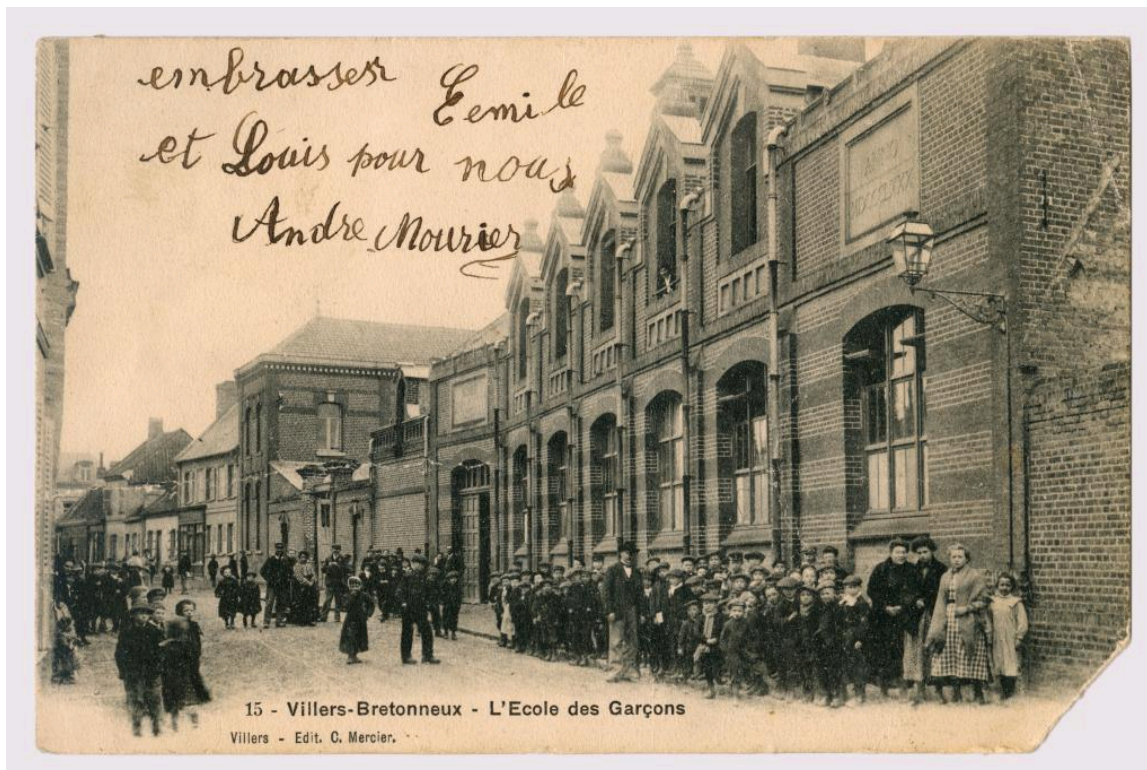 embrasser
Eemile
et Louis pour nous
Andre Mourier
ANNO
15 - Villers-Bretonneux - L'Ecole des Garçons
Villers - Edit. C. Mercier.